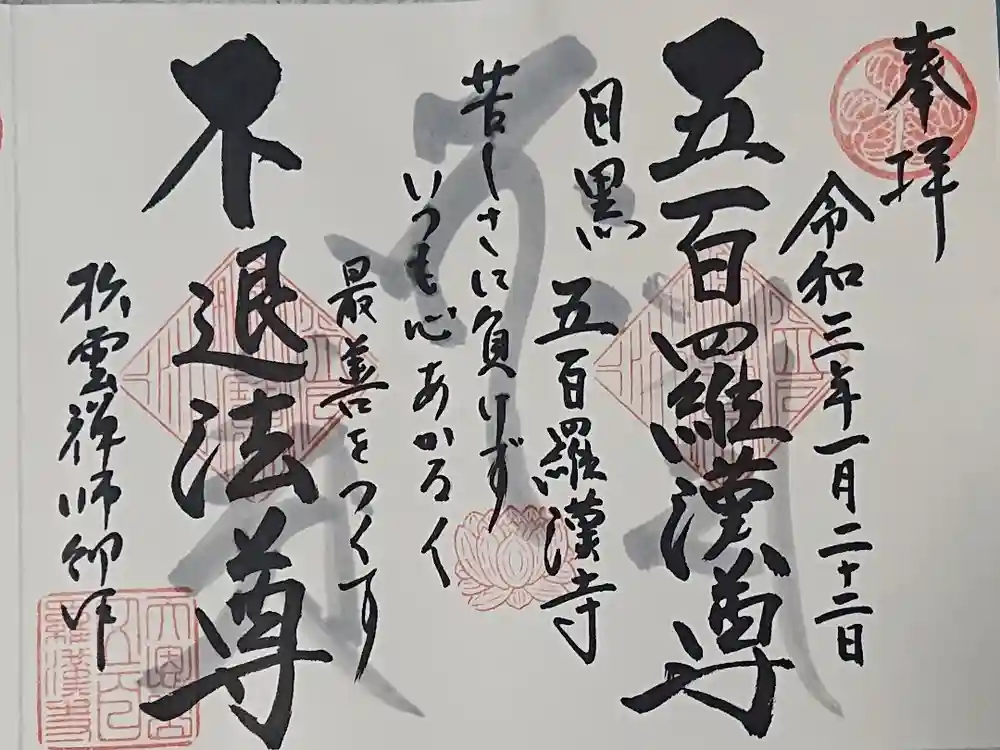 奉拝
令和三年一月二十二日
五百羅漢尊
目黒 五百羅漢寺
苦しさに負けず
いつも心あかるく
最善をつくす
不退法尊
松雲禅師御作